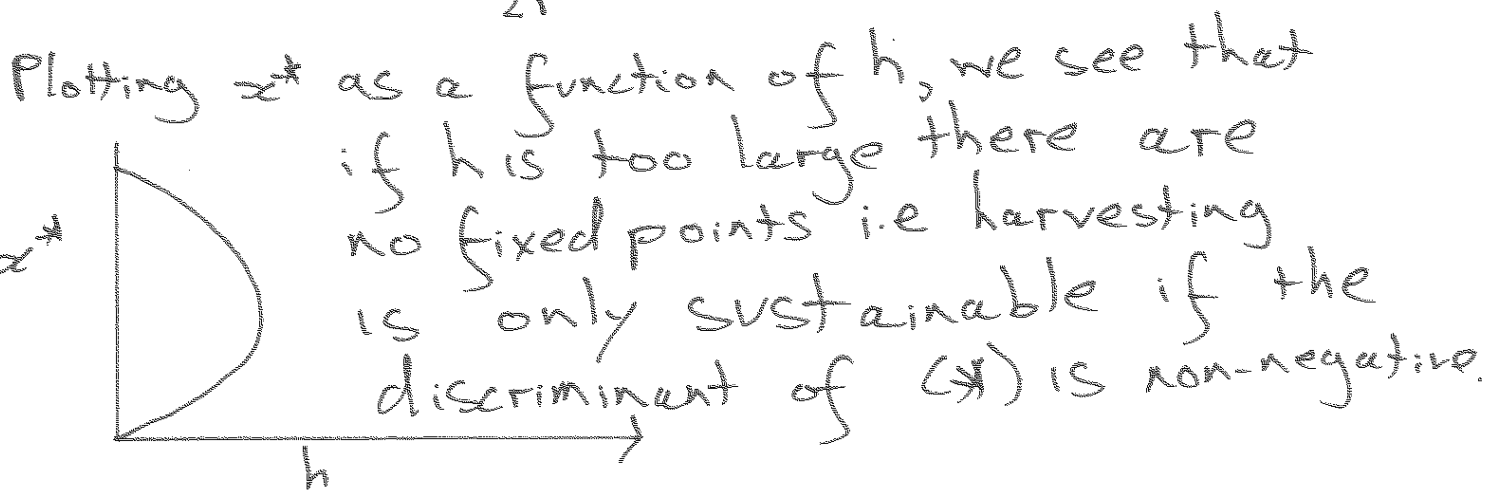 2r
Plotting x* as a function of h, we see that
if h is too large there are
no fixed points i.e harvesting
x*
is only sustainable if the
discriminant of (*) is non-negative.
h